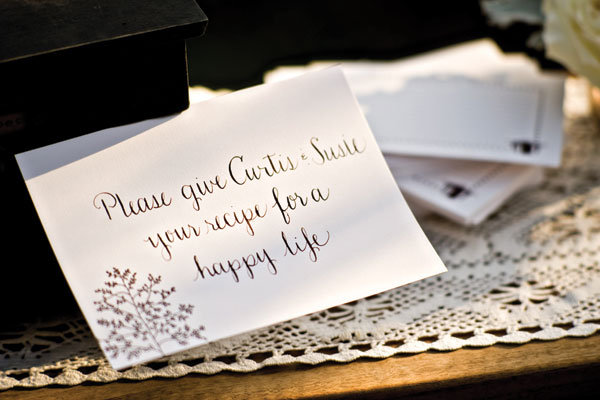 Please give Curtis & Susie
your recipe for a
happy life